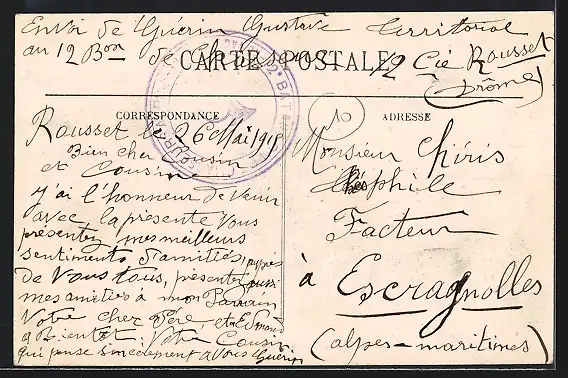 Envoi de Guérin Gustave Territorial
au 12 Bon de Chasseurs 12 Cié Rousset
(Drôme)
CARTE POSTALE
CORRESPONDANCE
ADRESSE
Rousset le 26 Mai 1915
Bien cher Cousin
et Cousine
J'ai l'honneur de Venir
avec la présente Vous
présenter mes meilleurs
sentiments d'amitiés, auprès
de Vous tous, présentez aussi
mes amitiés à mon Parrain
Votre cher Père, et Edmond
a Bientot. Votre Cousin
qui pense sincèrement a Vous Guérin
10
Monsieur Chiris
Théophile
Facteur
à Escragnolles
(alpes-maritimes)